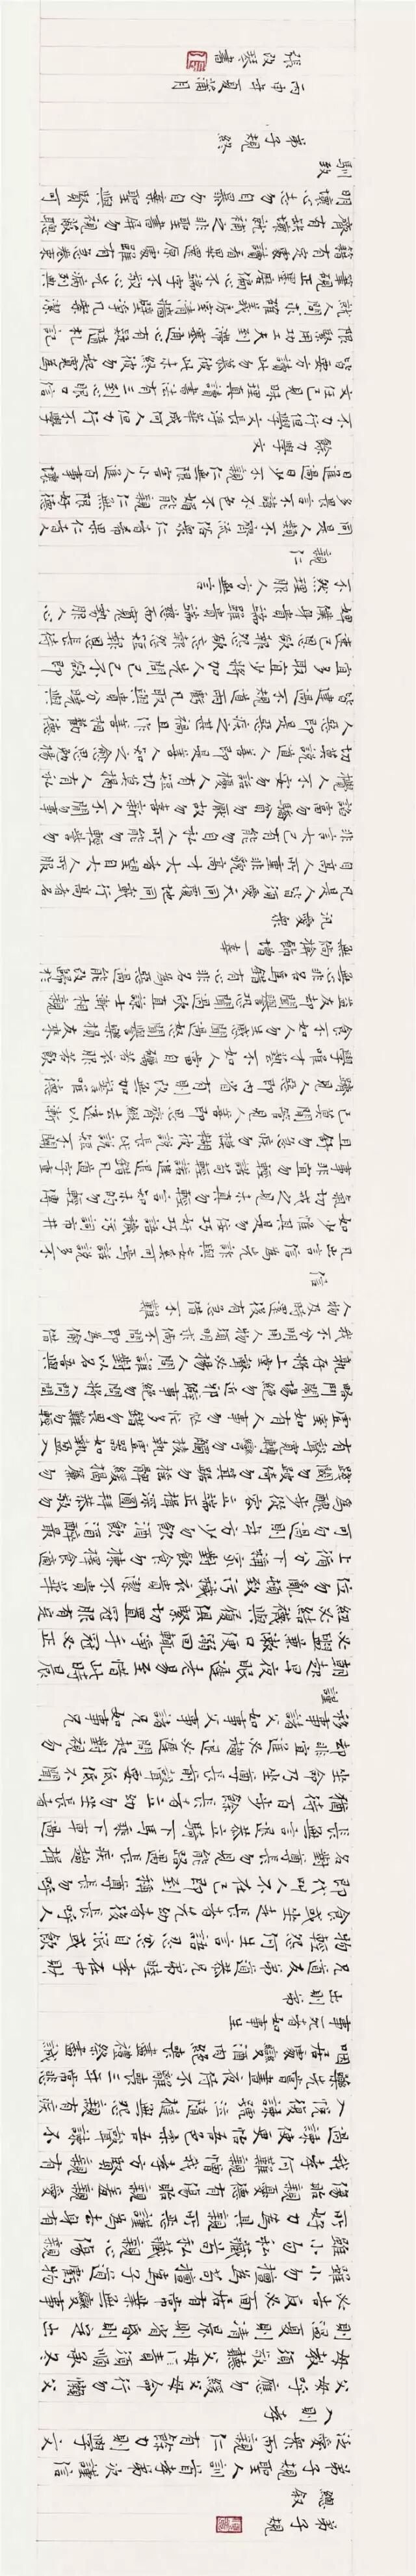 弟子規
總敘
弟子規聖人訓首孝弟次謹信
泛愛眾而親仁有餘力則學文
入則孝
父母呼應勿緩父母命勿行懶父
母教須敬聽父母責須順承冬
則溫夏則凊晨則省昏則定出
必告反必面居有常業無變事
雖小勿擅為苟擅為子道虧物
雖小勿私藏苟私藏親心傷親
所好力為具親所惡謹為去身有
傷貽親憂德有傷貽親羞親愛
我孝何難親憎我孝方賢親有
過諫使更怡吾色柔吾聲諫不
入悅復諫號泣隨撻無怨親有疾
藥先嘗晝夜侍不離床喪三年常悲
咽居處變酒肉絕喪盡禮祭盡誠
事死者如事生
出則弟
兄道友弟道恭兄弟睦孝在中財
物輕怨何生言語忍忿自泯或飲
食或坐走長者先幼者後長呼人
即代叫人不在己即到稱尊長勿呼
名對尊長勿見能路遇長疾趨揖
長無言退恭立騎下馬乘下車過
猶待百步餘長者立幼勿坐長者
坐命乃坐尊長前聲要低低不聞
卻非宜進必趨退必遲問起對視勿
移事諸父如事父事諸兄如事兄
謹
朝起早夜眠遲老易至惜此時晨
必盥兼漱口便溺回輒淨手冠必正
紐必結襪與履俱緊切置冠服有定
位勿亂頓致污穢衣貴潔不貴華
上循分下稱家對飲食勿揀擇食適
可勿過則年方少勿飲酒飲酒醉最
為醜步從容立端正揖深圓拜恭敬勿
踐閾勿跛倚勿箕踞勿搖髀緩揭簾勿
有聲寬轉彎勿觸棱執虛器如執盈入
虛室如有人事勿忙忙多錯勿畏難勿輕
略鬥鬧場絕勿近邪僻事絕勿問將入門問
孰存將上堂聲必揚人問誰對以名吾與
我不分明用人物須明求倘不問即為偷借
人物及時還後有急借不難
信
凡出言信為先詐與妄奚可焉話說多不
如少惟其是勿佞巧奸巧語穢污詞市井
氣切戒之見未真勿輕言知未的勿輕傳
事非宜勿輕諾苟輕諾進退錯凡道字重
且舒勿急疾勿模糊彼說長此說短不關
己莫閒管見人善即思齊縱去遠以漸
躋見人惡即內省有則改無加警唯德
學唯才藝不如人當自礪若衣服若飲
食不如人勿生慼聞過怒聞譽樂損友來
益友卻聞譽恐聞過欣直諒士漸相親
無心非名為錯有心非名為惡過能改歸於
無倘掩飾增一辜
汎愛眾
凡是人皆須愛天同覆地同載行高者名
自高人所重非貌高才大者望自大人所服
非言大己有能勿自私人所能勿輕訾勿
諂富勿驕貧勿厭故勿喜新人不閒勿事
攪人不安勿話擾人有短切莫揭人有私
切莫說道人善即是善人知之愈思勉揚
人惡即是惡疾之甚禍且作善相勸德
皆建過不規道兩虧凡取與貴分曉與
宜多取宜少將加人先問己己不欲即
速已恩欲報怨欲忘報怨短報恩長待
婢僕身貴端雖貴端慈而寬勢服人心
不然理服人方無言
親仁
同是人類不齊流俗眾仁者希果仁者人
多畏言不諱色不媚能親仁無限好德
日進過日少不親仁無限害小人進百事壞
餘力學文
不力行但學文長浮華成何人但力行不學
文任己見昧理真讀書法有三到心眼口信
皆要方讀此勿慕彼此未終彼勿起寬為
限緊用功工夫到滯塞通心有疑隨札記
就人問求確義房室清牆壁淨几案潔
筆硯正墨磨偏心不端字不敬心先病列典
籍有定處讀看畢還原處雖有急卷束
齊有缺壞就補之非聖書屏勿視蔽聰
明壞心志勿自暴勿自棄聖與賢可
馴致
弟子規終
丙申年夏蒲月
張改琴書